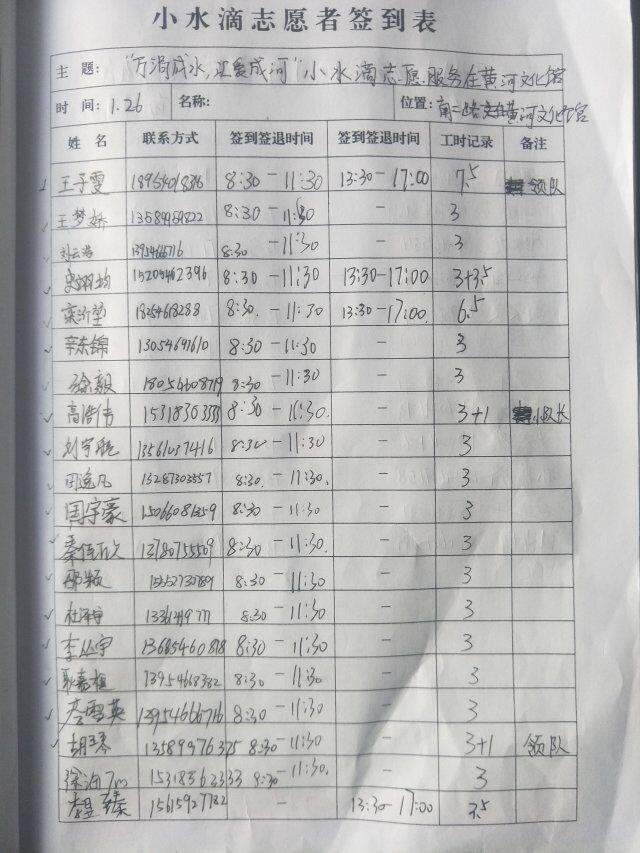 小水滴志愿者签到表
主 题: "万涓成水,汇爱成河"小水滴志愿服务在黄河文化馆
时 间: 1.26 名称: 位置: 黄河文化馆
姓 名 联系方式 签到签退时间 签到签退时间 工时记录 备注
王子雯 8:30-11:30 13:30-17:00 7.5 领队
王梦娇 13589959822 8:30-11:30 - 3
刘云浩 13954666716 8:30-11:30 - 3
15205462396 8:30-11:30 13:30-17:00 3+3.5
栾沂堃 18254618288 8:30.-11:30 13:30-17:00. 6.5
辛东锦 13054671610 8:30-11:30 - 3
徐毅 18054608719 8:30-11:30 - 3
高浩伟 15318303333 8:30-11:30. - 3+1 小队长
刘宇航 13561037416 8:30-11:30 - 3
田逸凡 13287303557 8:30.-11:30. - 3
国宇豪 15066081359 8:30-11:30 - 3
秦佳欣 13780755509 8:30-11:30. - 3
邵颖 15552730789 8:30-11:30 - 3
杜泽宇 8:30-11:30 - 3
李丛宇 13685460818 8:30-11:30 - 3
耿嘉桓 13954668382 8:30-11:30 - 3
李雪英 13954666716 8:30-11:30 - 3
胡琴 13589976375 8:30-11:30 - 3+1 领队
15318362333 8:30-11:30. - 3
15615927782 - 13:30-17:00 3.5